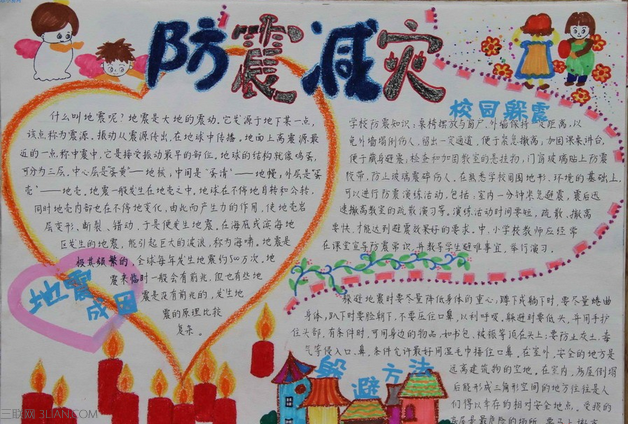 防震减灾
什么叫地震呢？地震是大地的震动，它发源于地下某一点，
该点称为震源，振动从震源传出，在地球中传播，地面上离震源最
近的一点称中震中，它是接受振动最早的部位，地球的结构就像鸡蛋，
可分为三层，中心层是"蛋黄"——地核，中间是"蛋清"——地幔，外层是"蛋
壳"——地壳，地震一般发生在地壳之中，地球在不停地自转和公转，
同时地壳内部也在不停地变化，由此而产生力的作用，使地壳岩
层变形、断裂、错动，于是便发生地震，在海底或滨海地
区发生的地震，能引起巨大的波浪，称为海啸，地震是
极其频繁的，全球每年发生地震约50万次，地
震来临时一般会有前兆，但也有些地
震是没有前兆的，发生地
震的原理比较
复杂。
地震
成因
校园躲震
学校防震知识：
保持一定距离，以
免外墙塌倒伤人，留出一定通道，便于紧急撤离，加固课桌讲台，
便于藏身避震，检查和加固教室的悬挂物，门窗玻璃贴上防震
胶带，防止玻璃震碎伤人，在熟悉学校校园地形、环境的基础上，
可以进行防震演练活动，包括：室内一分钟紧急避震，震后迅
速撤离教室的疏散演习等，演练活动时间要短，疏散、撤离
要快，才能达到避震效果好的要求，中、小学校教师应经常
在课堂宣导防震常识，并教导学生避难事宜，举行演习。
躲避地震时要尽量降低身体的重心，蹲下或躺下时，要尽量蜷曲
身体，趴下时要脸朝下，不要压住口鼻，以利呼吸，躲避时要低头，并用手护
住头部，有条件时，可用身边的物品，如书包、被褥等顶在头上；要防止灰土、毒
气等侵入口、鼻，条件允许最好用湿毛巾捂住口、鼻，在室外，安全的地方是
远离建筑物的空地，在室内，房屋倒塌
后能形成三角形空间的地方往往是人
们得以幸存的相对安全地点，
躲避方法
三联网 3LIAN.COM